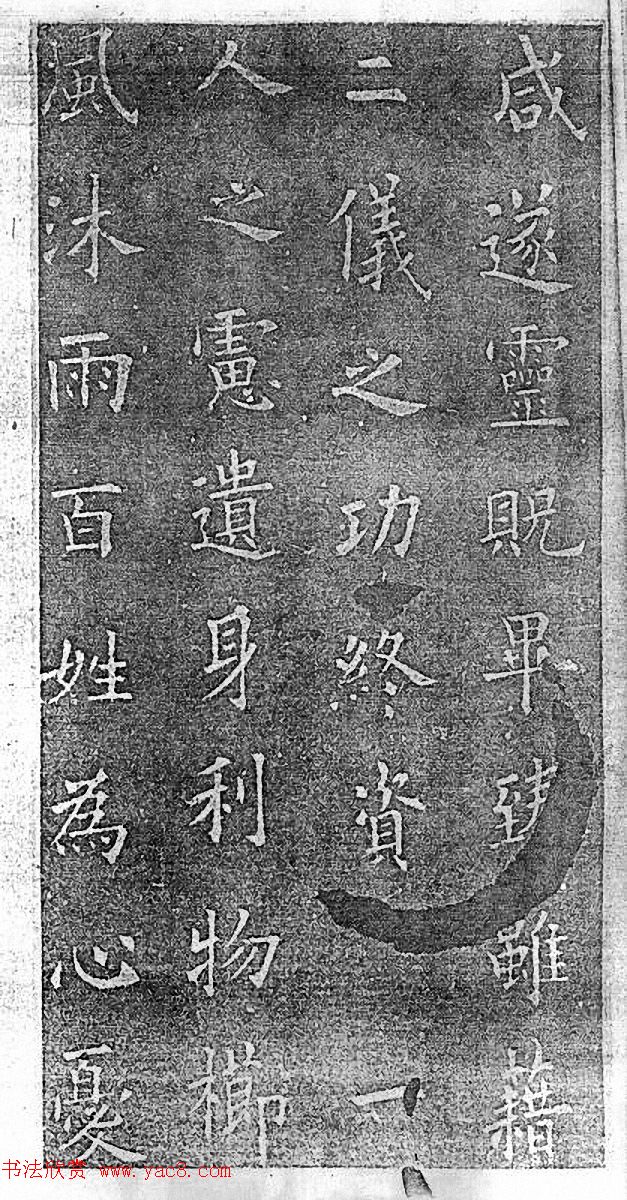 咸遂靈貺畢臻雖藉
二儀之功終資一
人之慮遺身利物櫛
風沐雨百姓為心憂
书法欣赏 www.yac8.com